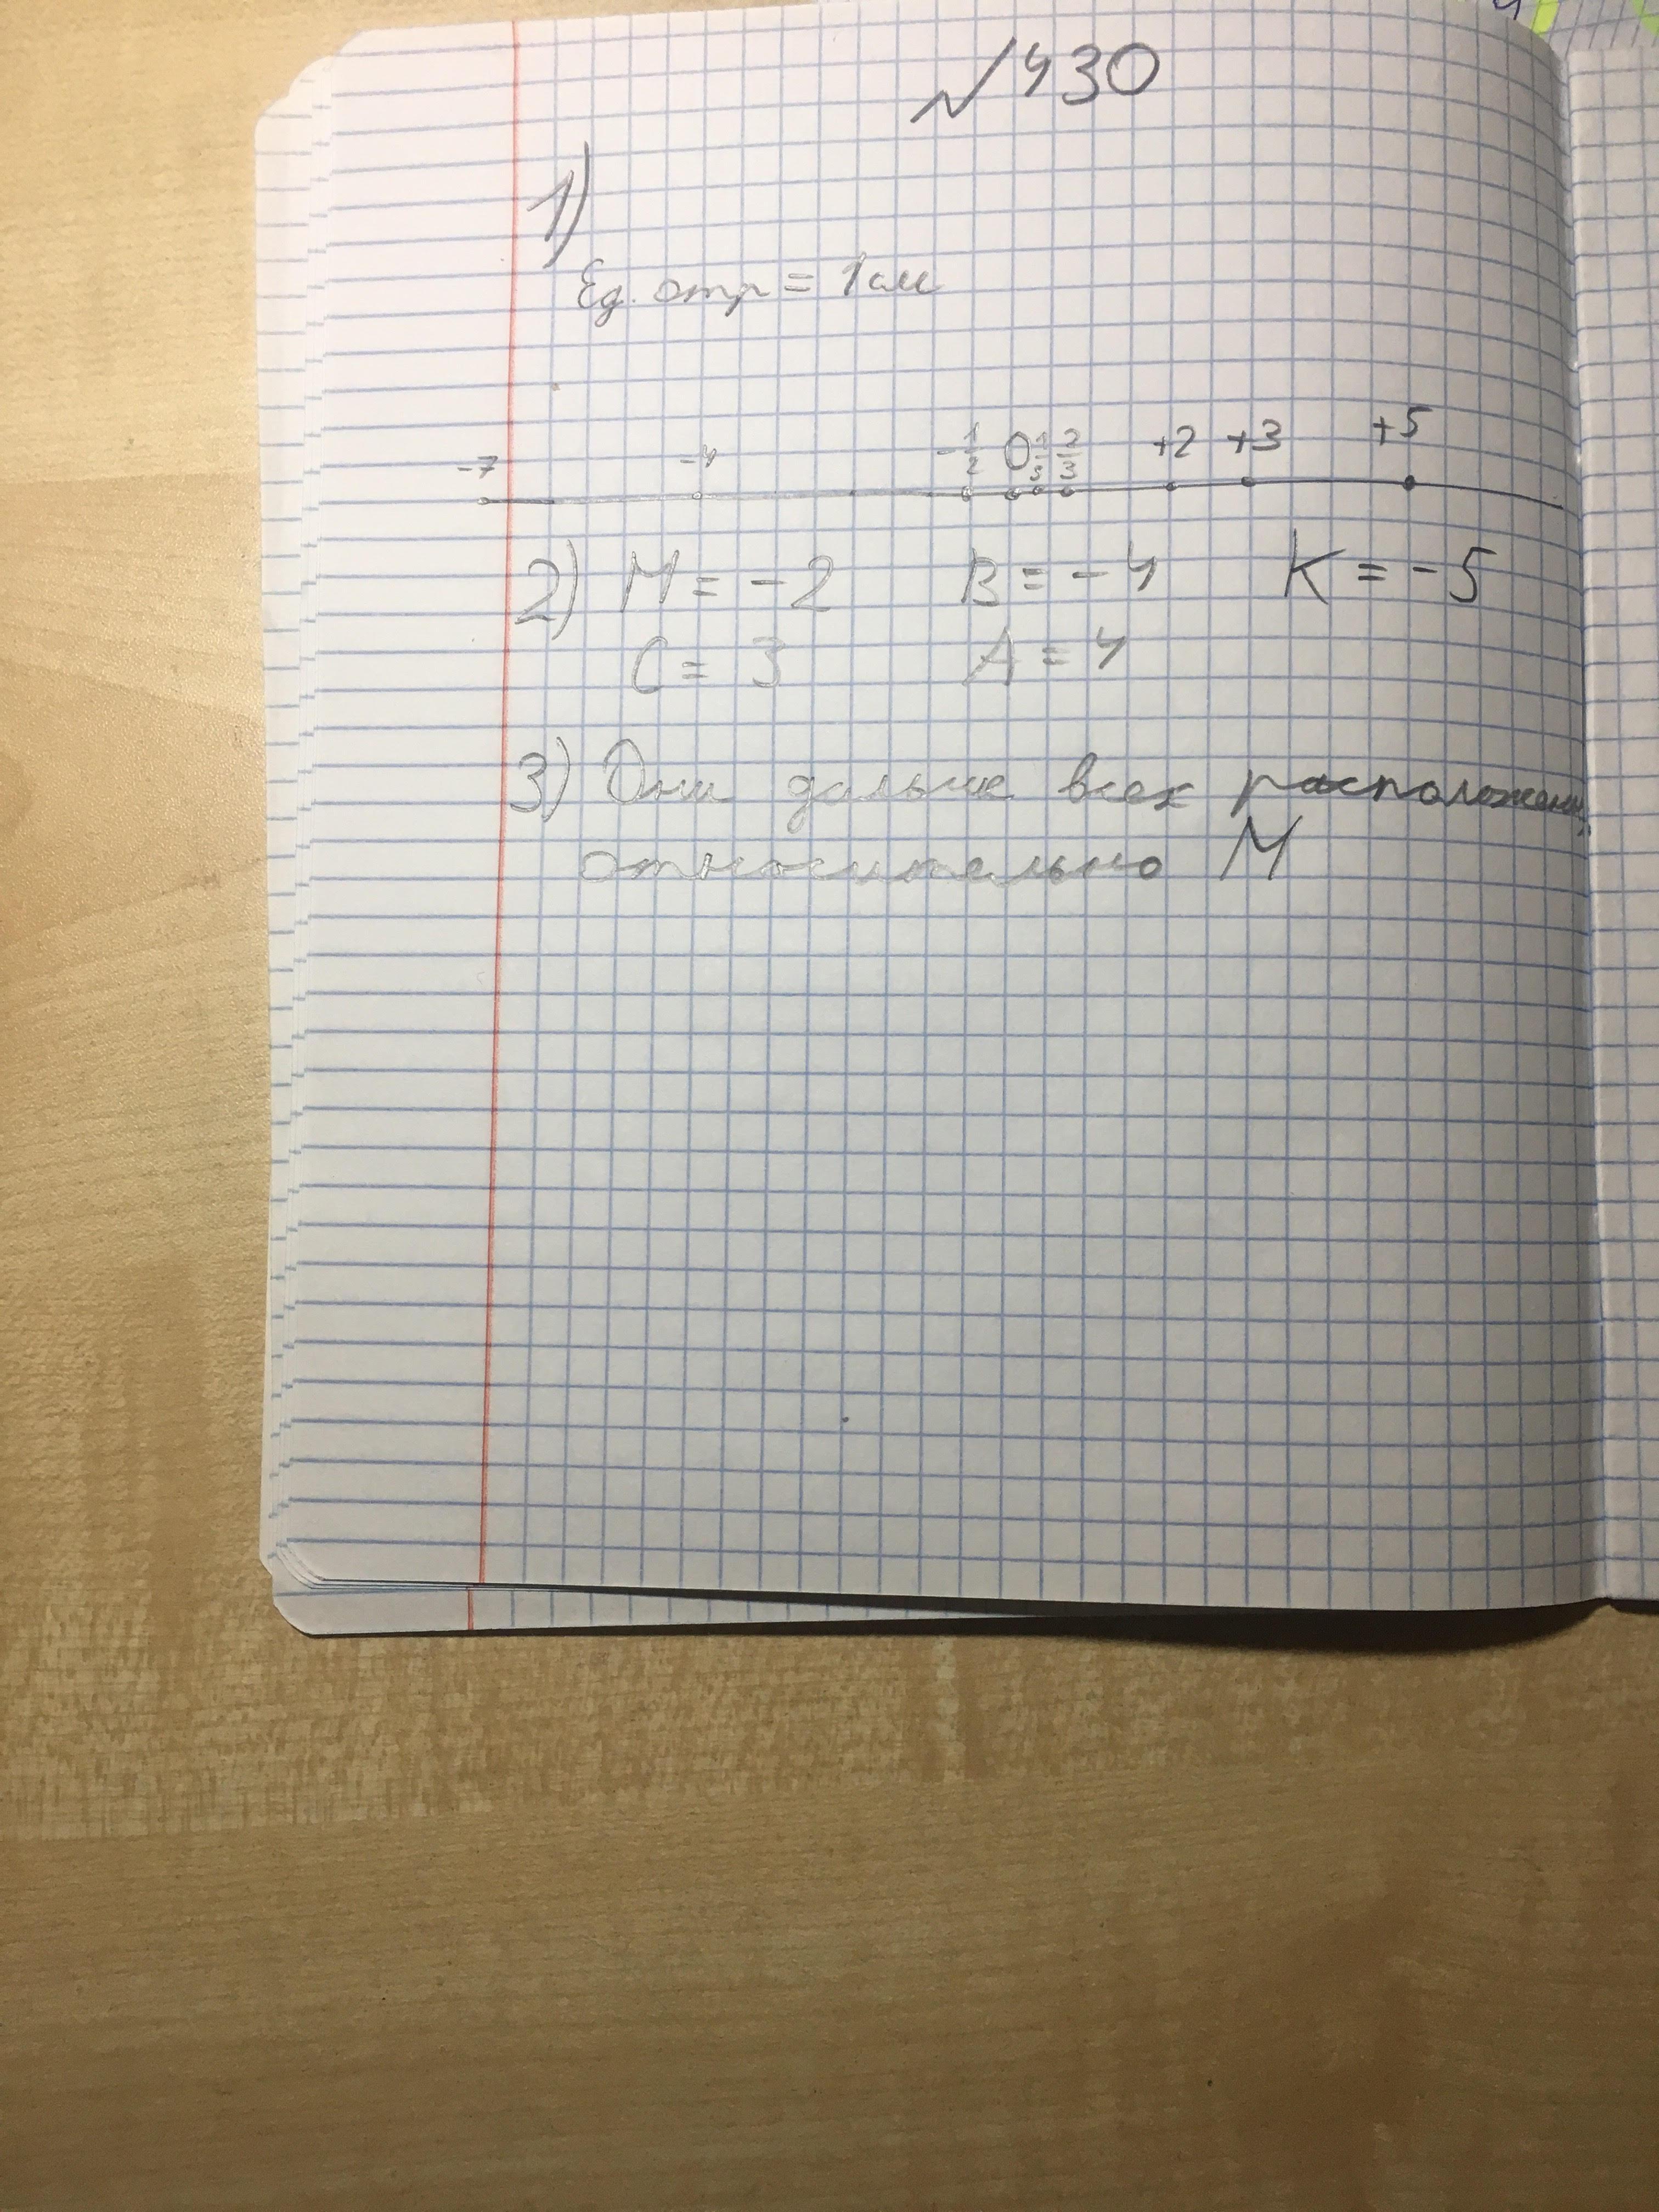 № 430
1)
Ед. отр = 1 см
-7 -4 -1/2 0 1/3 2/3 +2 +3 +5
2) M = -2 B = -4 K = -5
C = 3 A = 4
3) Они дальше всех расположены,
относительно М